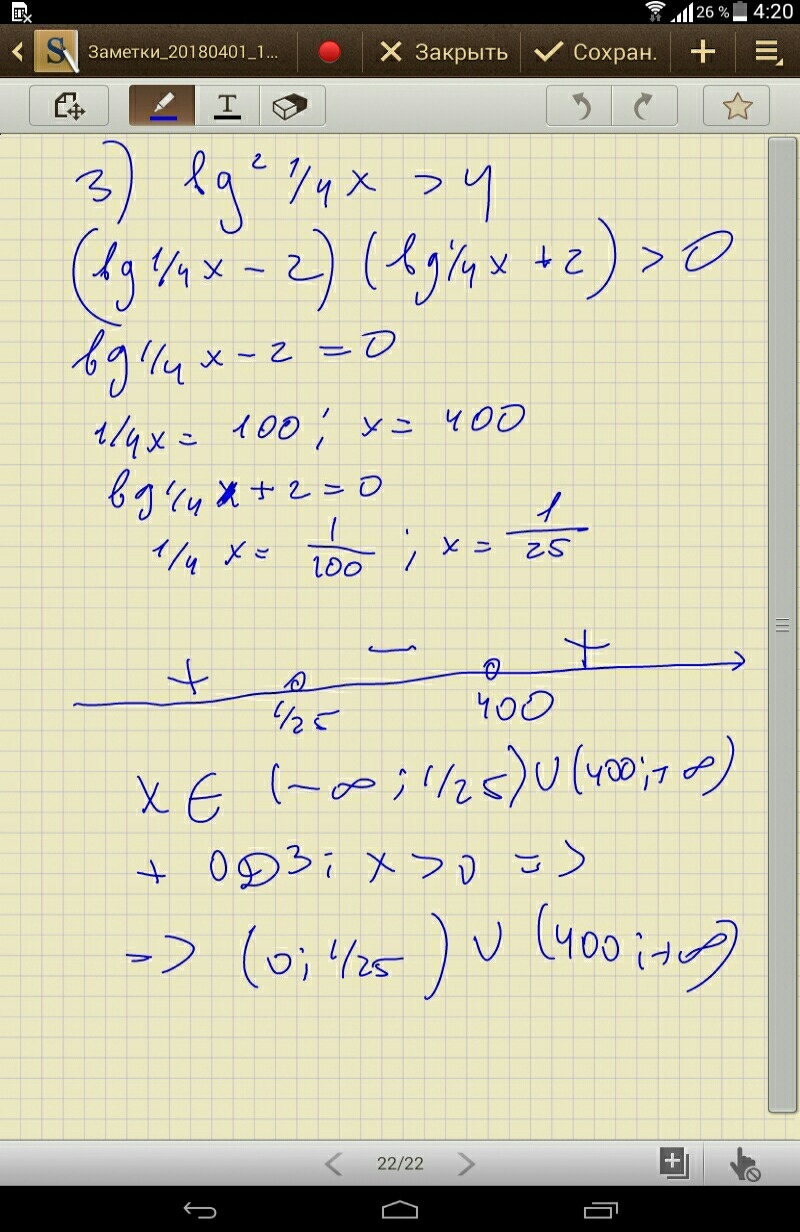 26 % 4:20
Заметки_20180401_1... Закрыть Сохран.
T
3) lg² 1/4 x > 4
(lg 1/4 x - 2) (lg 1/4 x + 2) > 0
lg 1/4 x - 2 = 0
1/4 x = 100; x = 400
lg 1/4 x + 2 = 0
1/4 x = 1/100; x = 1/25
+ - +
1/25 400
x ∈ (-∞; 1/25) ∪ (400; +∞)
+ ОДЗ: x > 0 =>
=> (0; 1/25) ∪ (400; +∞)
22/22